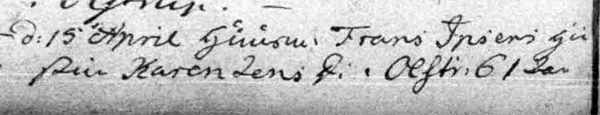 d: 15 April Huusm: Frans Ipsens Hu
stru Karen Jens D: i Olstr: 61 Aar